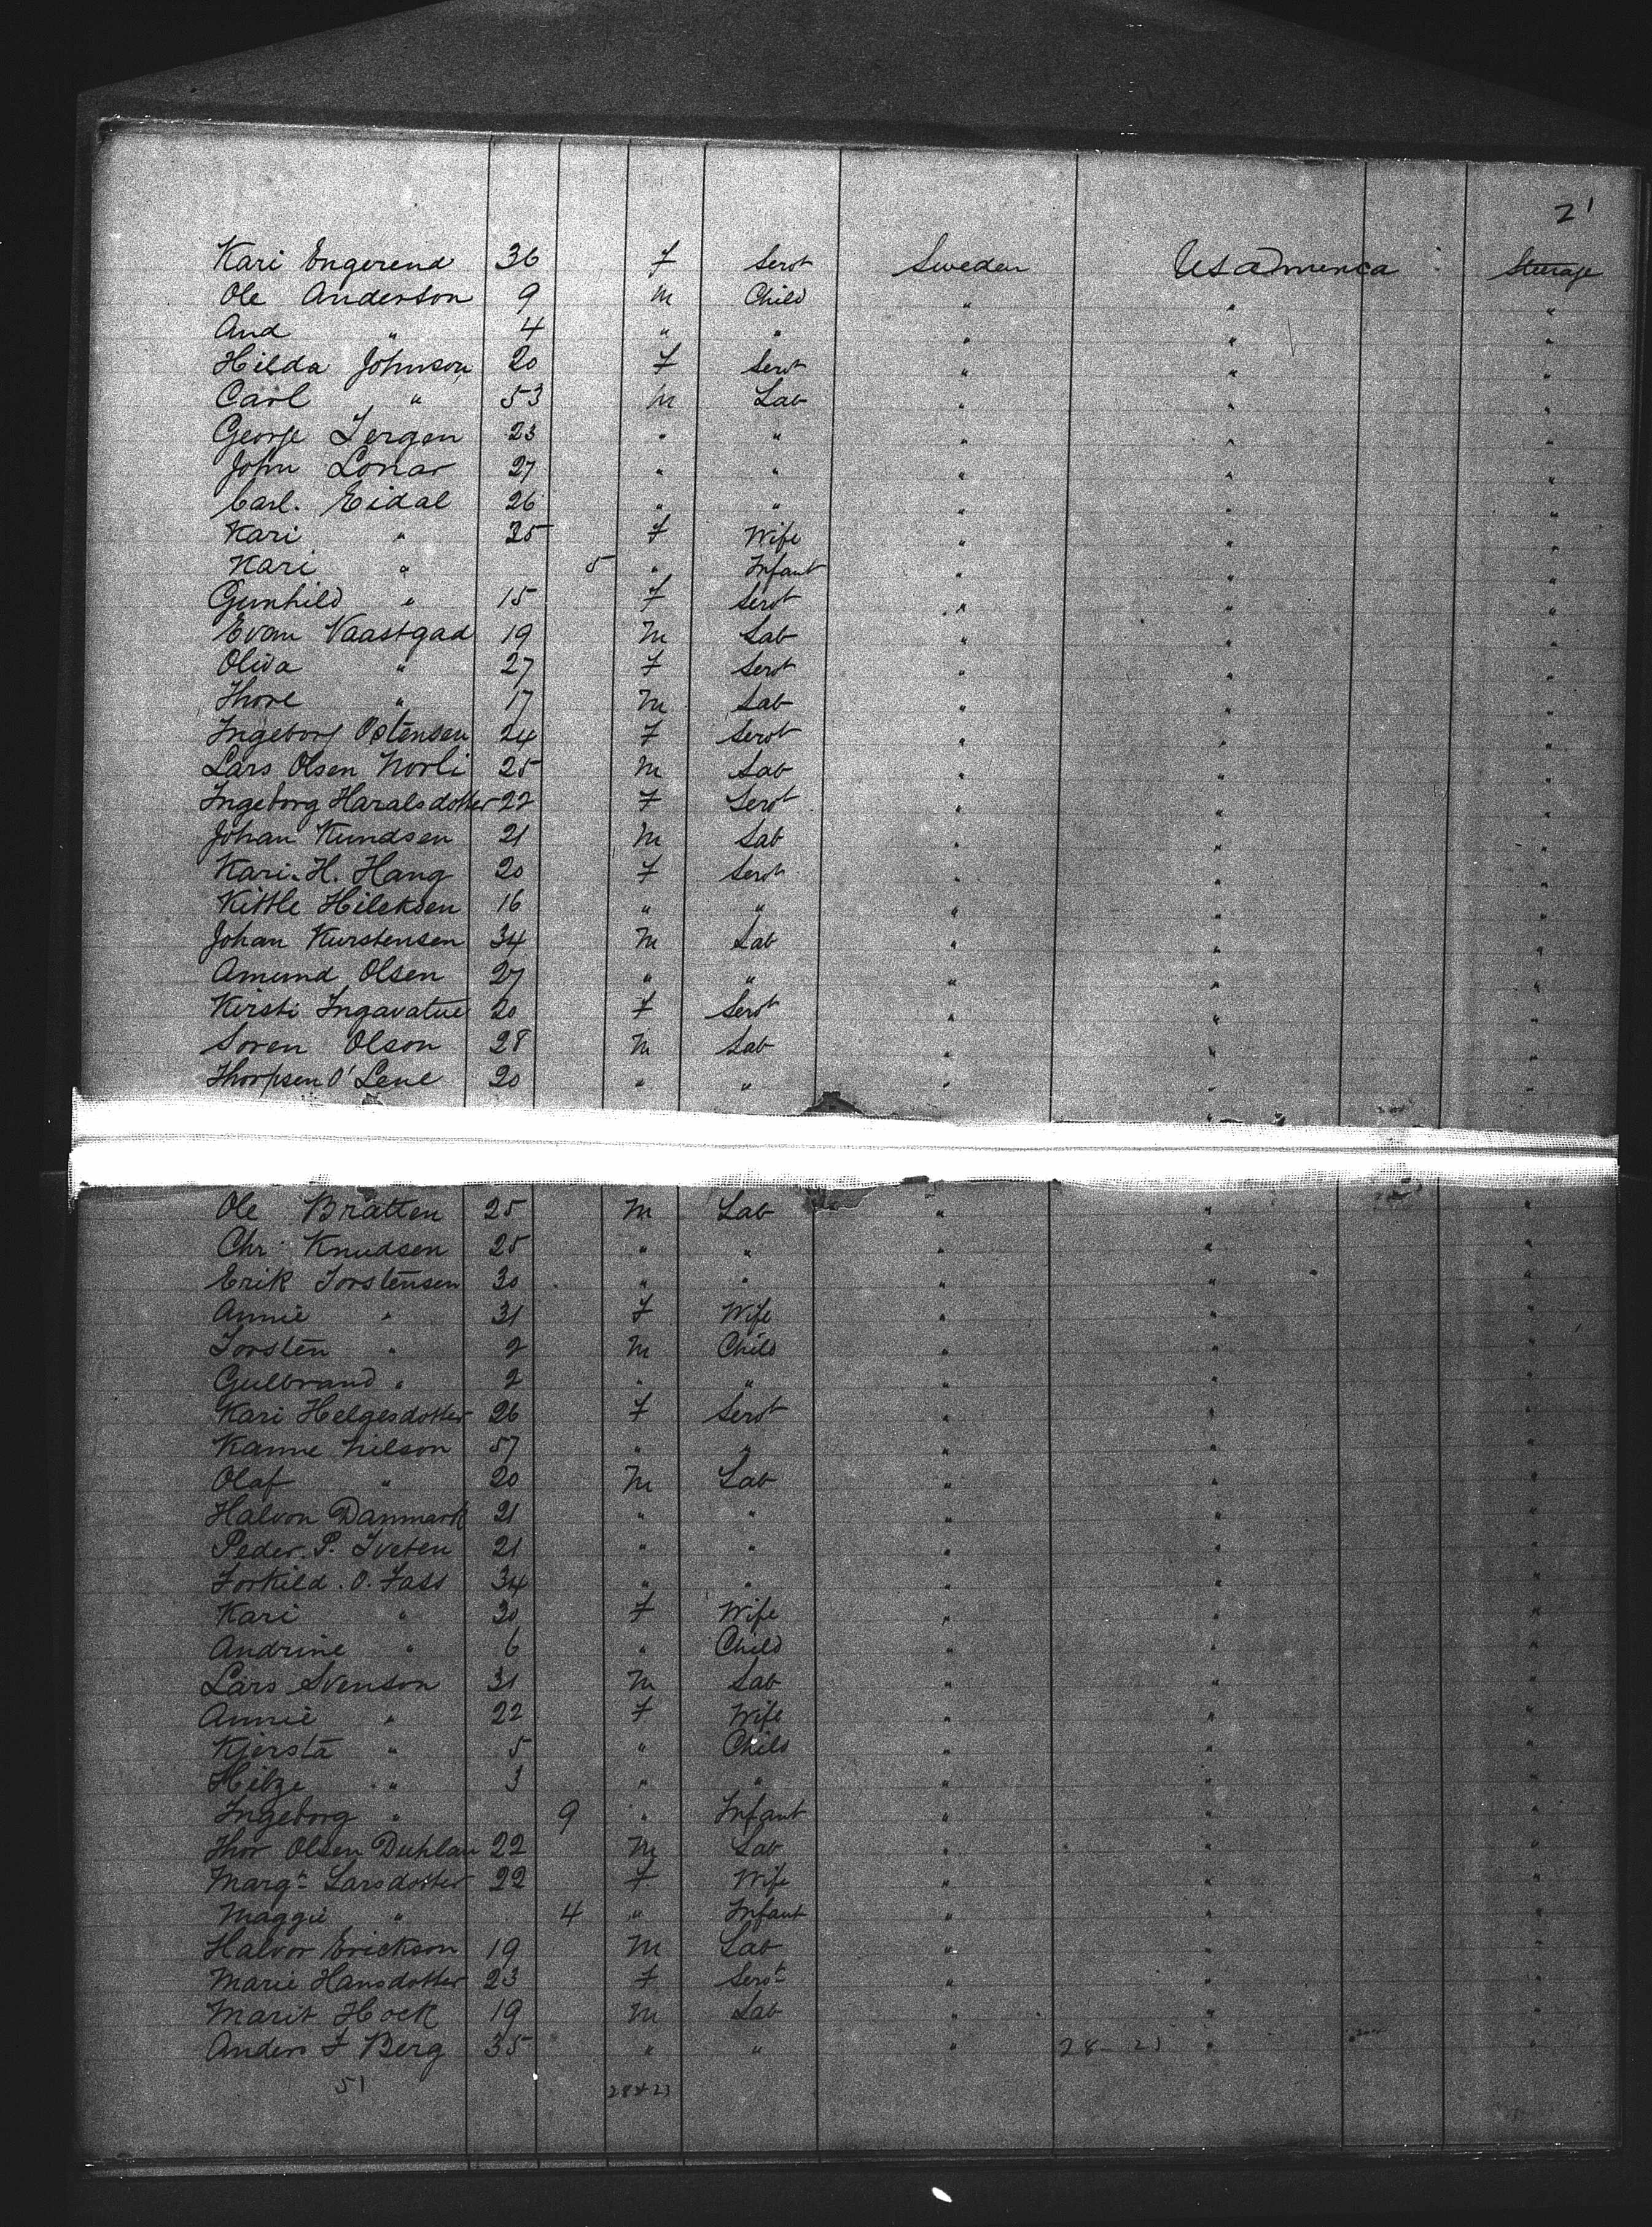 21
Kari Engerend 36 F Servt Sweden US America Steerage
Ole Anderson 9 M Child " " "
And " 4 " " " " "
Hilda Johnson 20 F Servt " " "
Carl " 53 M Lab " " "
George Jergen 23 " " " " "
John Lonar 27 " " " " "
Carl. Eidal 26 " " " " "
Kari " 25 F Wife " " "
Kari " 5 " Infant " " "
Gunhild " 15 F Servt " " "
Evan Vaastgad 19 M Lab " " "
Oliva " 27 F Servt " " "
Thore " 17 M Lab " " "
Ingeborg Ostensen 24 F Servt " " "
Lars Olsen Norli 25 M Lab " " "
Ingeborg Haralsdotter 22 F Servt " " "
Johan Kundsen 21 M Lab " " "
Kari. H. Hang 20 F Servt " " "
Kittle Hileksen 16 " " " " "
Johan Kurstensen 34 M Lab " " "
Amund Olsen 27 " " " " "
Kirsti Ingavatue 20 F Servt " " "
Soren Olson 28 M Lab " " "
Thorpsen O'Lene 20 " " " " "
Ole Bratten 25 M Lab " " "
Chr Knudsen 25 " " " " "
Erik Torstensen 30 " " " " "
Annie " 31 F Wife " " "
Torsten " 2 M Child " " "
Gulbrand " 2 " " " " "
Kari Helgesdotter 26 F Servt " " "
Kanne Nilson 57 " " " " "
Olaf " 20 M Lab " " "
Halvon Danmark 21 " " " " "
Peder. P. Tveten 21 " " " " "
Torkild. O. Fass 34 " " " " "
Kari " 30 F Wife " " "
Andrine " 6 " Child " " "
Lars Svenson 31 M Lab " " "
Annie " 22 F Wife " " "
Kjersta " 5 " Child " " "
Helge " 3 " " " " "
Ingeborg " 9 " Infant " " "
Thor Olsen Duhlan 22 M Lab " " "
Margt Larsdotter 22 F Wife " " "
Maggie " 4 " Infant " " "
Halvor Erickson 19 M Lab " " "
Marie Hansdotter 23 F Servt " " "
Marit Hock 19 M Lab " " "
Anders F Berg 35 " " " 28-23 " "
51 28+23